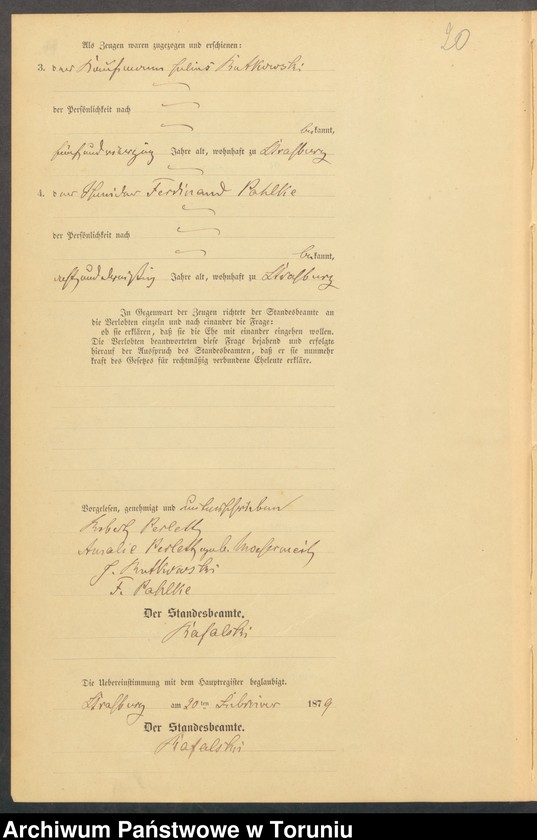 20
Als Zeugen waren zugezogen und erschienen:
3. der Kaufmann Julius Rutkowski
der Persönlichkeit nach
be kannt,
fünfundvierzig Jahre alt, wohnhaft zu Straßburg
4. der Schneider Ferdinand Pahlke
der Persönlichkeit nach
be kannt,
achtunddreißig Jahre alt, wohnhaft zu Straßburg
In Gegenwart der Zeugen richtete der Standesbeamte an
die Verlobten einzeln und nach einander die Frage:
ob sie erklären, daß sie die Ehe mit einander eingehen wollen.
Die Verlobten beantworteten diese Frage bejahend und erfolgte
hierauf der Ausspruch des Standesbeamten, daß er sie nunmehr
kraft des Gesetzes für rechtmäßig verbundene Eheleute erkläre.
Vorgelesen, genehmigt und unterschrieben
Robert Perleth
Amalie Perleth geb.
J. Rutkowski
F. Pahlke
Der Standesbeamte.
Kafalski
Die Uebereinstimmung mit dem Hauptregister beglaubigt.
Straßburg am 20ten Februar 1879
Der Standesbeamte.
Kafalski
Archiwum Państwowe w Toruniu